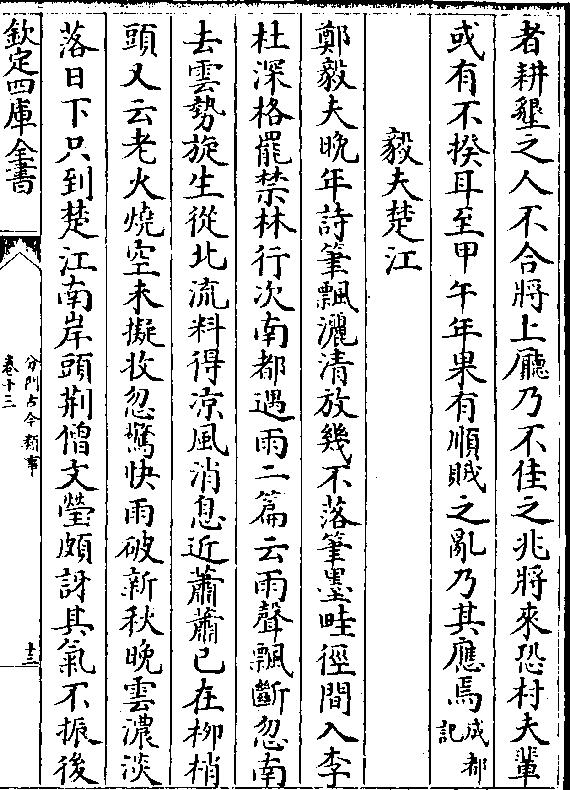 者耕墾之人不合將上廳乃不佳之兆將來恐村夫輩
或有不揆耳至甲午年果有順賊之亂乃其應焉成都記
毅夫楚江
鄭毅夫晚年詩筆飄灑清放幾不落筆墨畦徑間入李
杜深格罷禁林行次南都遇雨二篇云雨聲飄斷忽南
去雲勢旋生從北流料得凉風消息近蕭蕭已在柳梢
頭又云老火燒空未擬收忽驚快雨破新秋晚雲濃淡
落日下只到楚江南岸頭荆僧文瑩頗訝其氣不振後
欽定四庫全書
分門古今類事
卷十三
十三